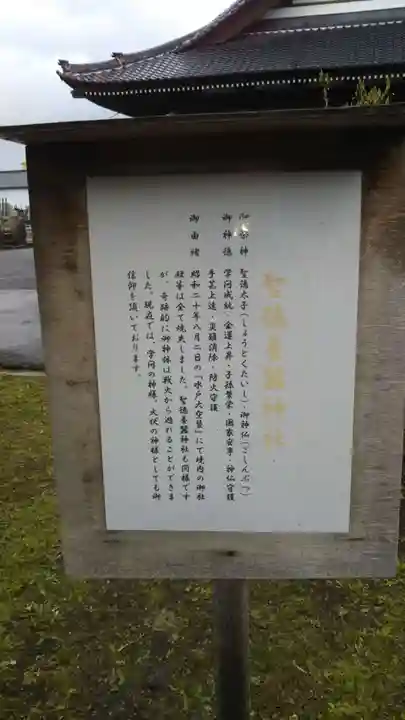 聖徳養蚕神社
御祭神 聖徳太子(しょうとくたいし)御神仏(ごしんぶつ)
御神徳 学問成就・金運上昇・子孫繁栄・国家安寧・神仏守護
手芸上達・災難消除・防火守護
御由緒 昭和二十年八月二日の「水戸大空襲」にて境内の御社
社等は全て焼失しました。聖徳養蚕神社も同様です
が、奇跡的に御神体は戦火から逃れることができま
した。現在では、学問の神様、火伏の神様としても御
信仰を頂いております。